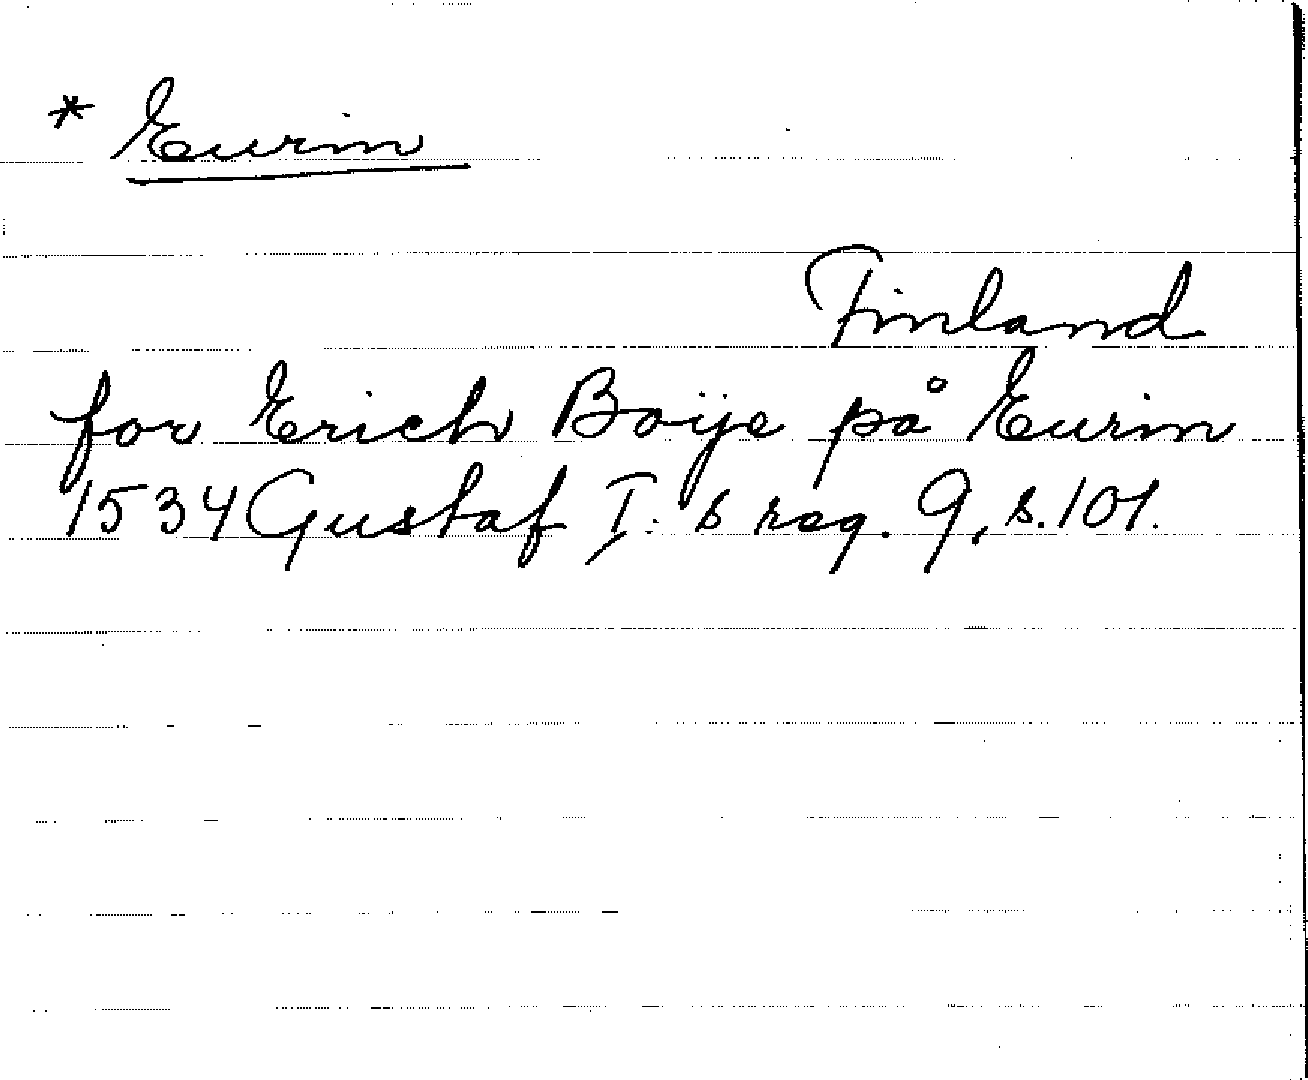 * Eurin
Finland
for Erich Boije på Eurin
1534 Gustaf I:s reg. 9, s. 101.